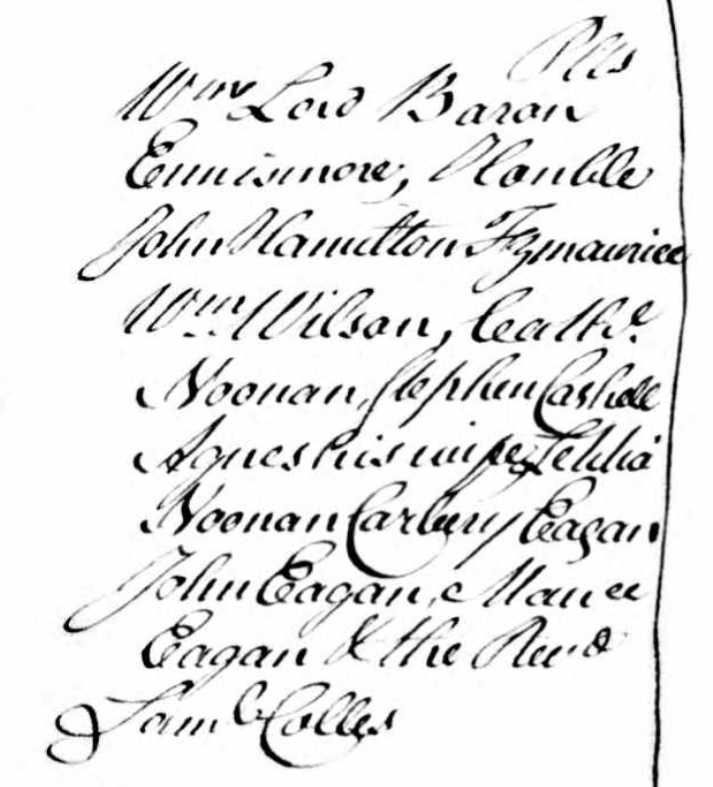 Plts
Wm Lord Baron
Ennismore, Honble
John Hamilton Fzmaurice
Wm Wilson, Cathe
Noonan, Stephen Cashell
Agnes his wife, Letitia
Noonan Carbery Eagan
John Eagan, Maurice
Eagan & the Revd
Saml Colles